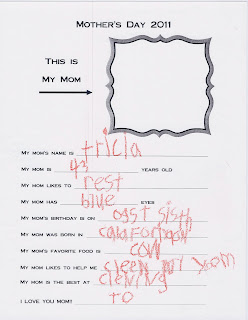 MOTHER'S DAY 2011
THIS IS
MY MOM
MY MOM'S NAME IS tricia
MY MOM IS 43 YEARS OLD
MY MOM LIKES TO rest
MY MOM HAS blue EYES
MY MOM'S BIRTHDAY IS ON ogst sisth
MY MOM WAS BORN IN
MY MOM'S FAVORITE FOOD IS cow
MY MOM LIKES TO HELP ME cleen MY room
MY MOM IS THE BEST AT clening
I LOVE YOU MOM!! to